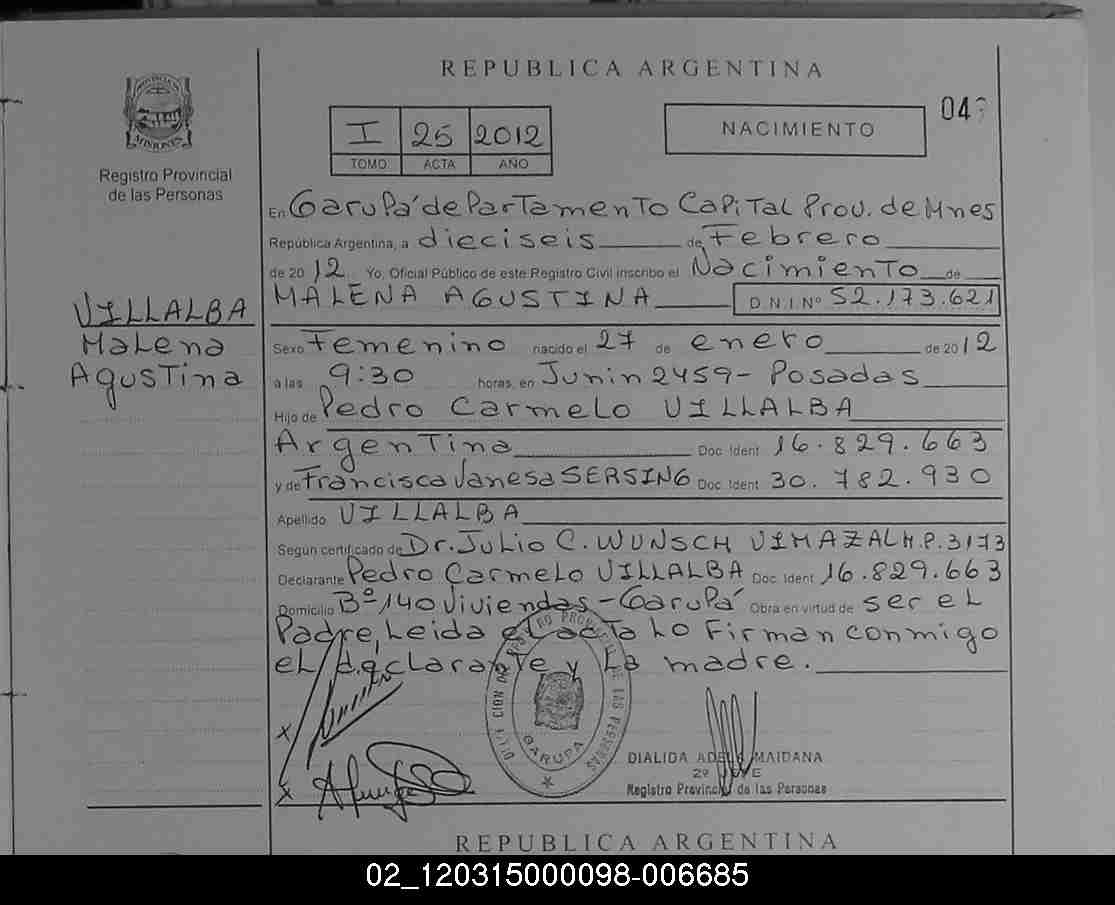 REPUBLICA ARGENTINA
PROVINCIA DE
MISIONES
Registro Provincial
de las Personas
I 25 2012
TOMO ACTA AÑO
NACIMIENTO
04
En Garupá departamento Capital Prov. de Mnes
República Argentina, a dieciseis de Febrero
de 2012 Yo, Oficial Público de este Registro Civil inscribo el Nacimiento de
MALENA AGUSTINA D.N.I. Nº 52.173.621
VILLALBA
Malena
Agustina
Sexo Femenino nacido el 27 de enero de 2012
a las 9:30 horas, en Junin 2459- Posadas
Hijo de Pedro Carmelo VILLALBA
Argentina Doc. Ident 16.829.663
y de Francisca Vanesa SERSING Doc. Ident 30.782.930
Apellido VILLALBA
Según certificado de Dr. Julio C. WUNSCH VIMAZAL M.P. 3173
Declarante Pedro Carmelo VILLALBA Doc. Ident 16.829.663
Domicilio Bº 140 Viviendas - Garupá Obra en virtud de ser el
Padre, Leida el acta lo firman conmigo
el declarante y la madre.
DE LAS PERSONAS
GARUPA
DIALIDA ADELA MAIDANA
2º JEFE
Registro Provincial de las Personas
REPUBLICA ARGENTINA
02_120315000098-006685